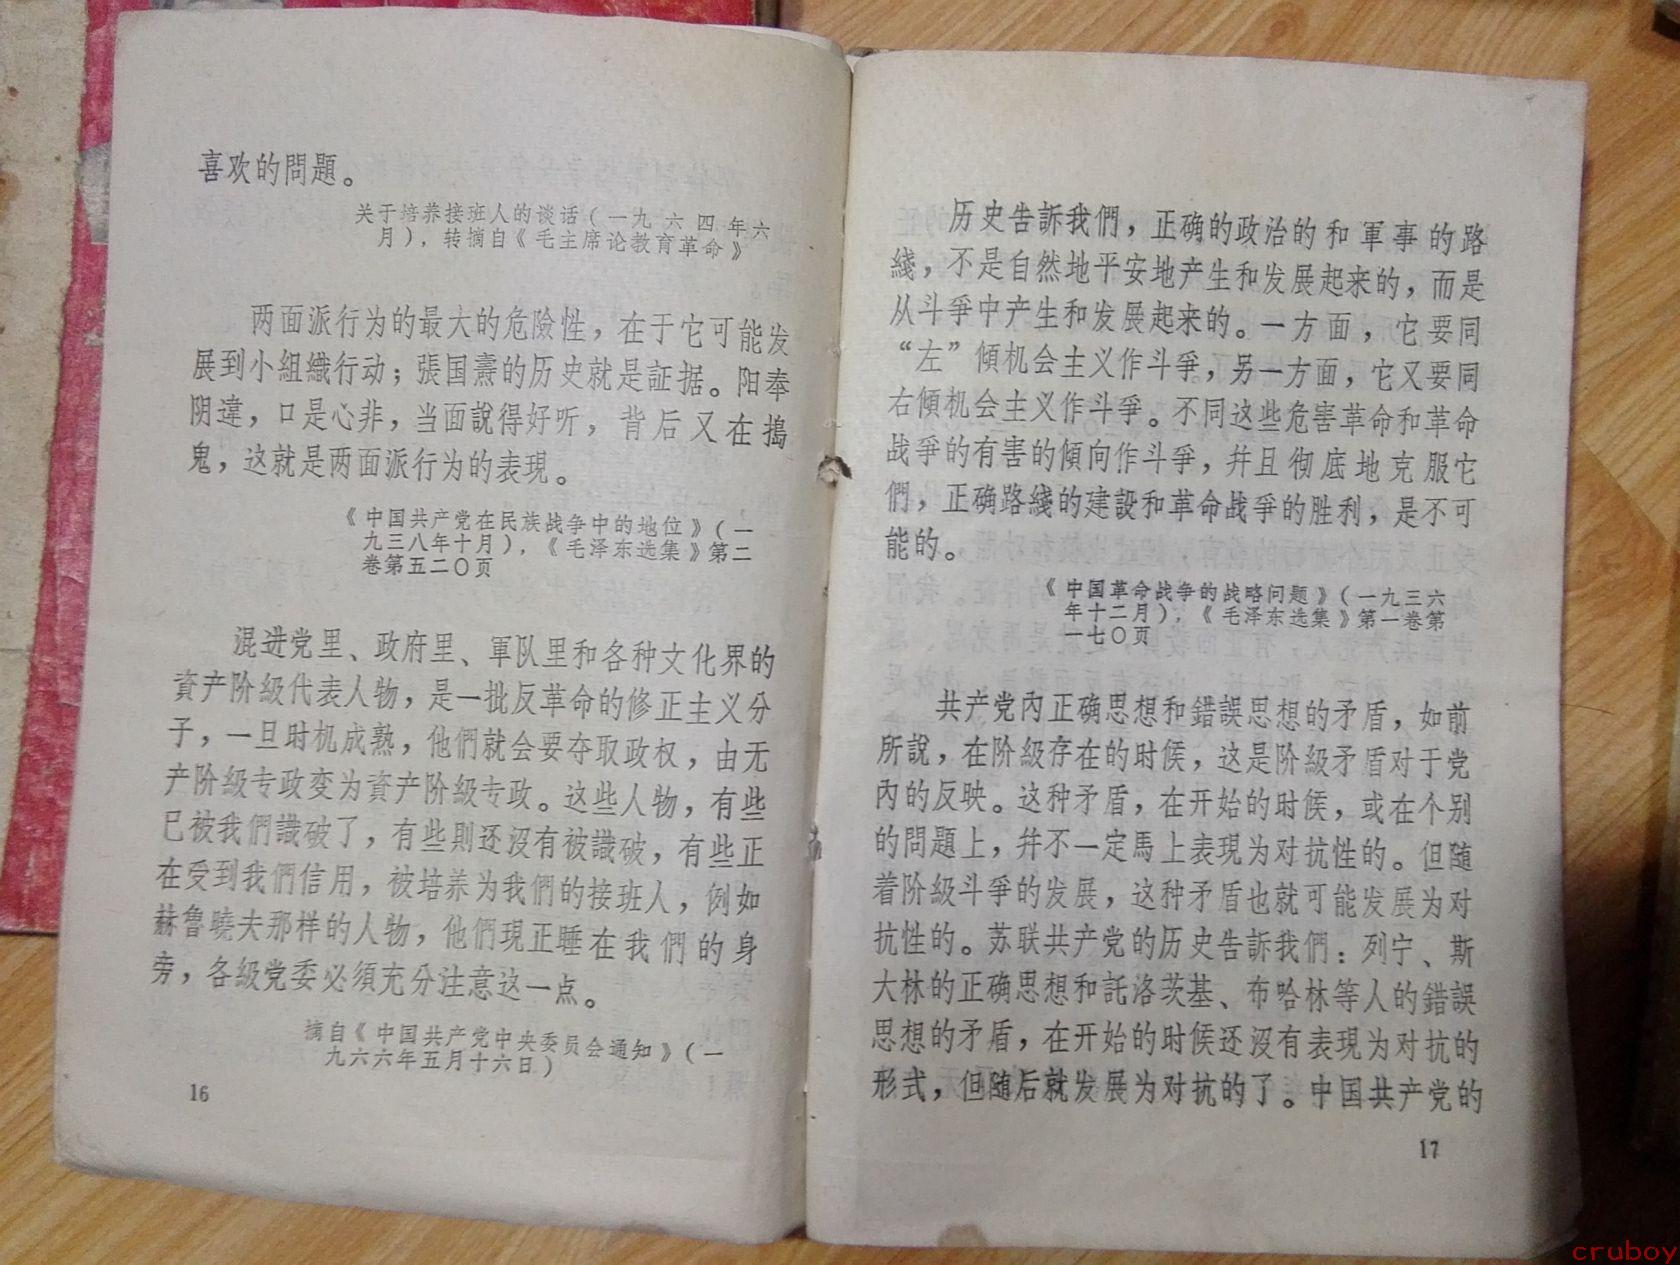 喜欢的問題。
关于培养接班人的谈话(一九六四年六
月),转摘自《毛主席论教育革命》
两面派行为的最大的危險性,在于它可能发
展到小組織行动;張国燾的历史就是証据。阳奉
阴違,口是心非,当面說得好听,背后又在搗
鬼,这就是两面派行为的表現。
《中国共产党在民族战争中的地位》(一
九三八年十月),《毛泽东选集》第二
卷第五二〇页
混进党里、政府里、軍队里和各种文化界的
資产阶級代表人物,是一批反革命的修正主义分
子,一旦时机成熟,他們就会要夺取政权,由无
产阶級专政变为資产阶級专政。这些人物,有些
已被我們識破了,有些則还沒有被識破,有些正
在受到我們信用,被培养为我們的接班人,例如
赫魯曉夫那样的人物,他們現正睡在我們的身
旁,各級党委必須充分注意这一点。
摘自《中国共产党中央委员会通知》(一
九六六年五月十六日)
16
历史告訴我們,正确的政治的和軍事的路
綫,不是自然地平安地产生和发展起来的,而是
从斗爭中产生和发展起来的。一方面,它要同
“左”傾机会主义作斗爭,另一方面,它又要同
右傾机会主义作斗爭。不同这些危害革命和革命
战爭的有害的傾向作斗爭,幷且彻底地克服它
們,正确路綫的建設和革命战爭的胜利,是不可
能的。
《中国革命战争的战略问题》(一九三六
年十二月),《毛泽东选集》第一卷第
一七〇页
共产党內正确思想和錯誤思想的矛盾,如前
所說,在阶級存在的时候,这是阶級矛盾对于党
內的反映。这种矛盾,在开始的时候,或在个别
的問題上,幷不一定馬上表現为对抗性的。但随
着阶級斗爭的发展,这种矛盾也就可能发展为对
抗性的。苏联共产党的历史告訴我們:列宁、斯
大林的正确思想和託洛茨基、布哈林等人的錯誤
思想的矛盾,在开始的时候还沒有表現为对抗的
形式,但随后就发展为对抗的了。中国共产党的
17
cruboy